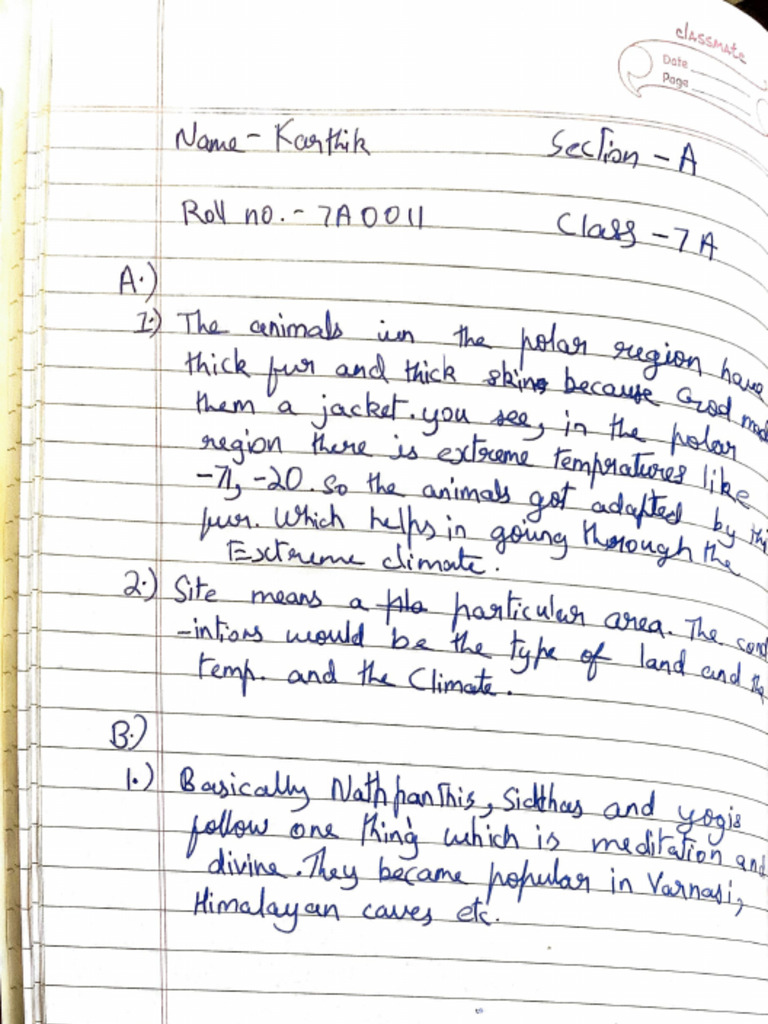 classmate
Date
Page
Name - Karthik Section - A
Roll no. - 7A0011 Class - 7A
A.)
1.) The animals in the polar region have
thick fur and thick skin because God
them a jacket. you see, in the polar
region there is extreme tempratures like
-71, -20. So the animals got adapted by
fur. Which helps in going thorough the
Extreme climate.
2.) Site means a particular area. The cond
-intions would be the type of land and the
temp. and the Climate.
B.)
1.) Basically NathpanThis, Siddhas and yogis
follow one thing which is meditation and
divine. They became popular in Varnasi,
Himalayan caves etc.